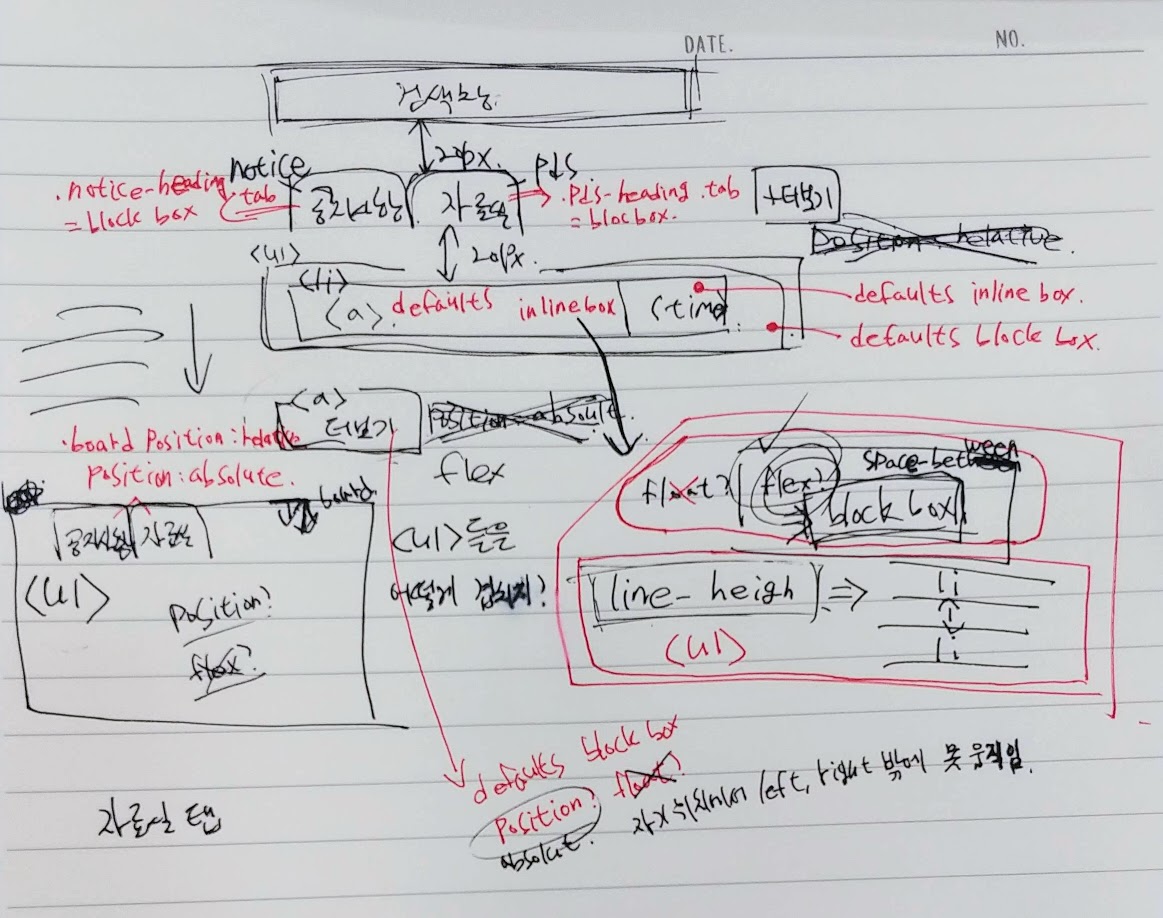 DATE. NO.
검색
20px.
notice
pds
.notice-heading .tab
= block box
공지사항
자료실
.Pds-heading .tab
= blocbox.
+더보기
position: relative.
<ul>
20px.
<li>
<a>. defaults inline box
<time
defaults inline box.
defaults block box.
<a>
더보기
position: absolute.
flex
.board position: relative
position: absolute.
board
공지사항
자료실
<ul>
position?
flex?
<ul>들은
어떻게 겹치지?
float?
flex?
space-between
block box
line-heigh
=>
li
li
<ul>
defaults block box
position? float?
absolut.
left, right 밖에 못 움직임.
자료실 탭